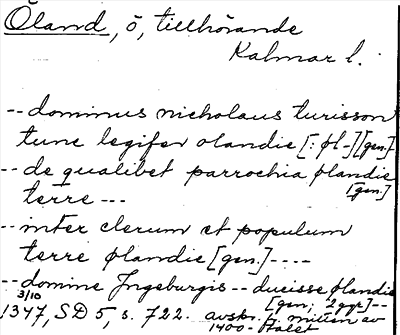 Öland, ö, tillhörande
Kalmar l.
-- dominus nicholaus turisson
tunc legifer olandie [: øl-] [gen.]
-- de qualibet parrochia ølandie
[gen.]
terre ---
-- inter clerum et populum
terre ølandie [gen.] ----
-- domine Ingeburgis -- ducisse ølandie
[gen; 2 ggr] --
3/10
1347, SD 5, s. 722. avskr. f. mitten av
1400-talet